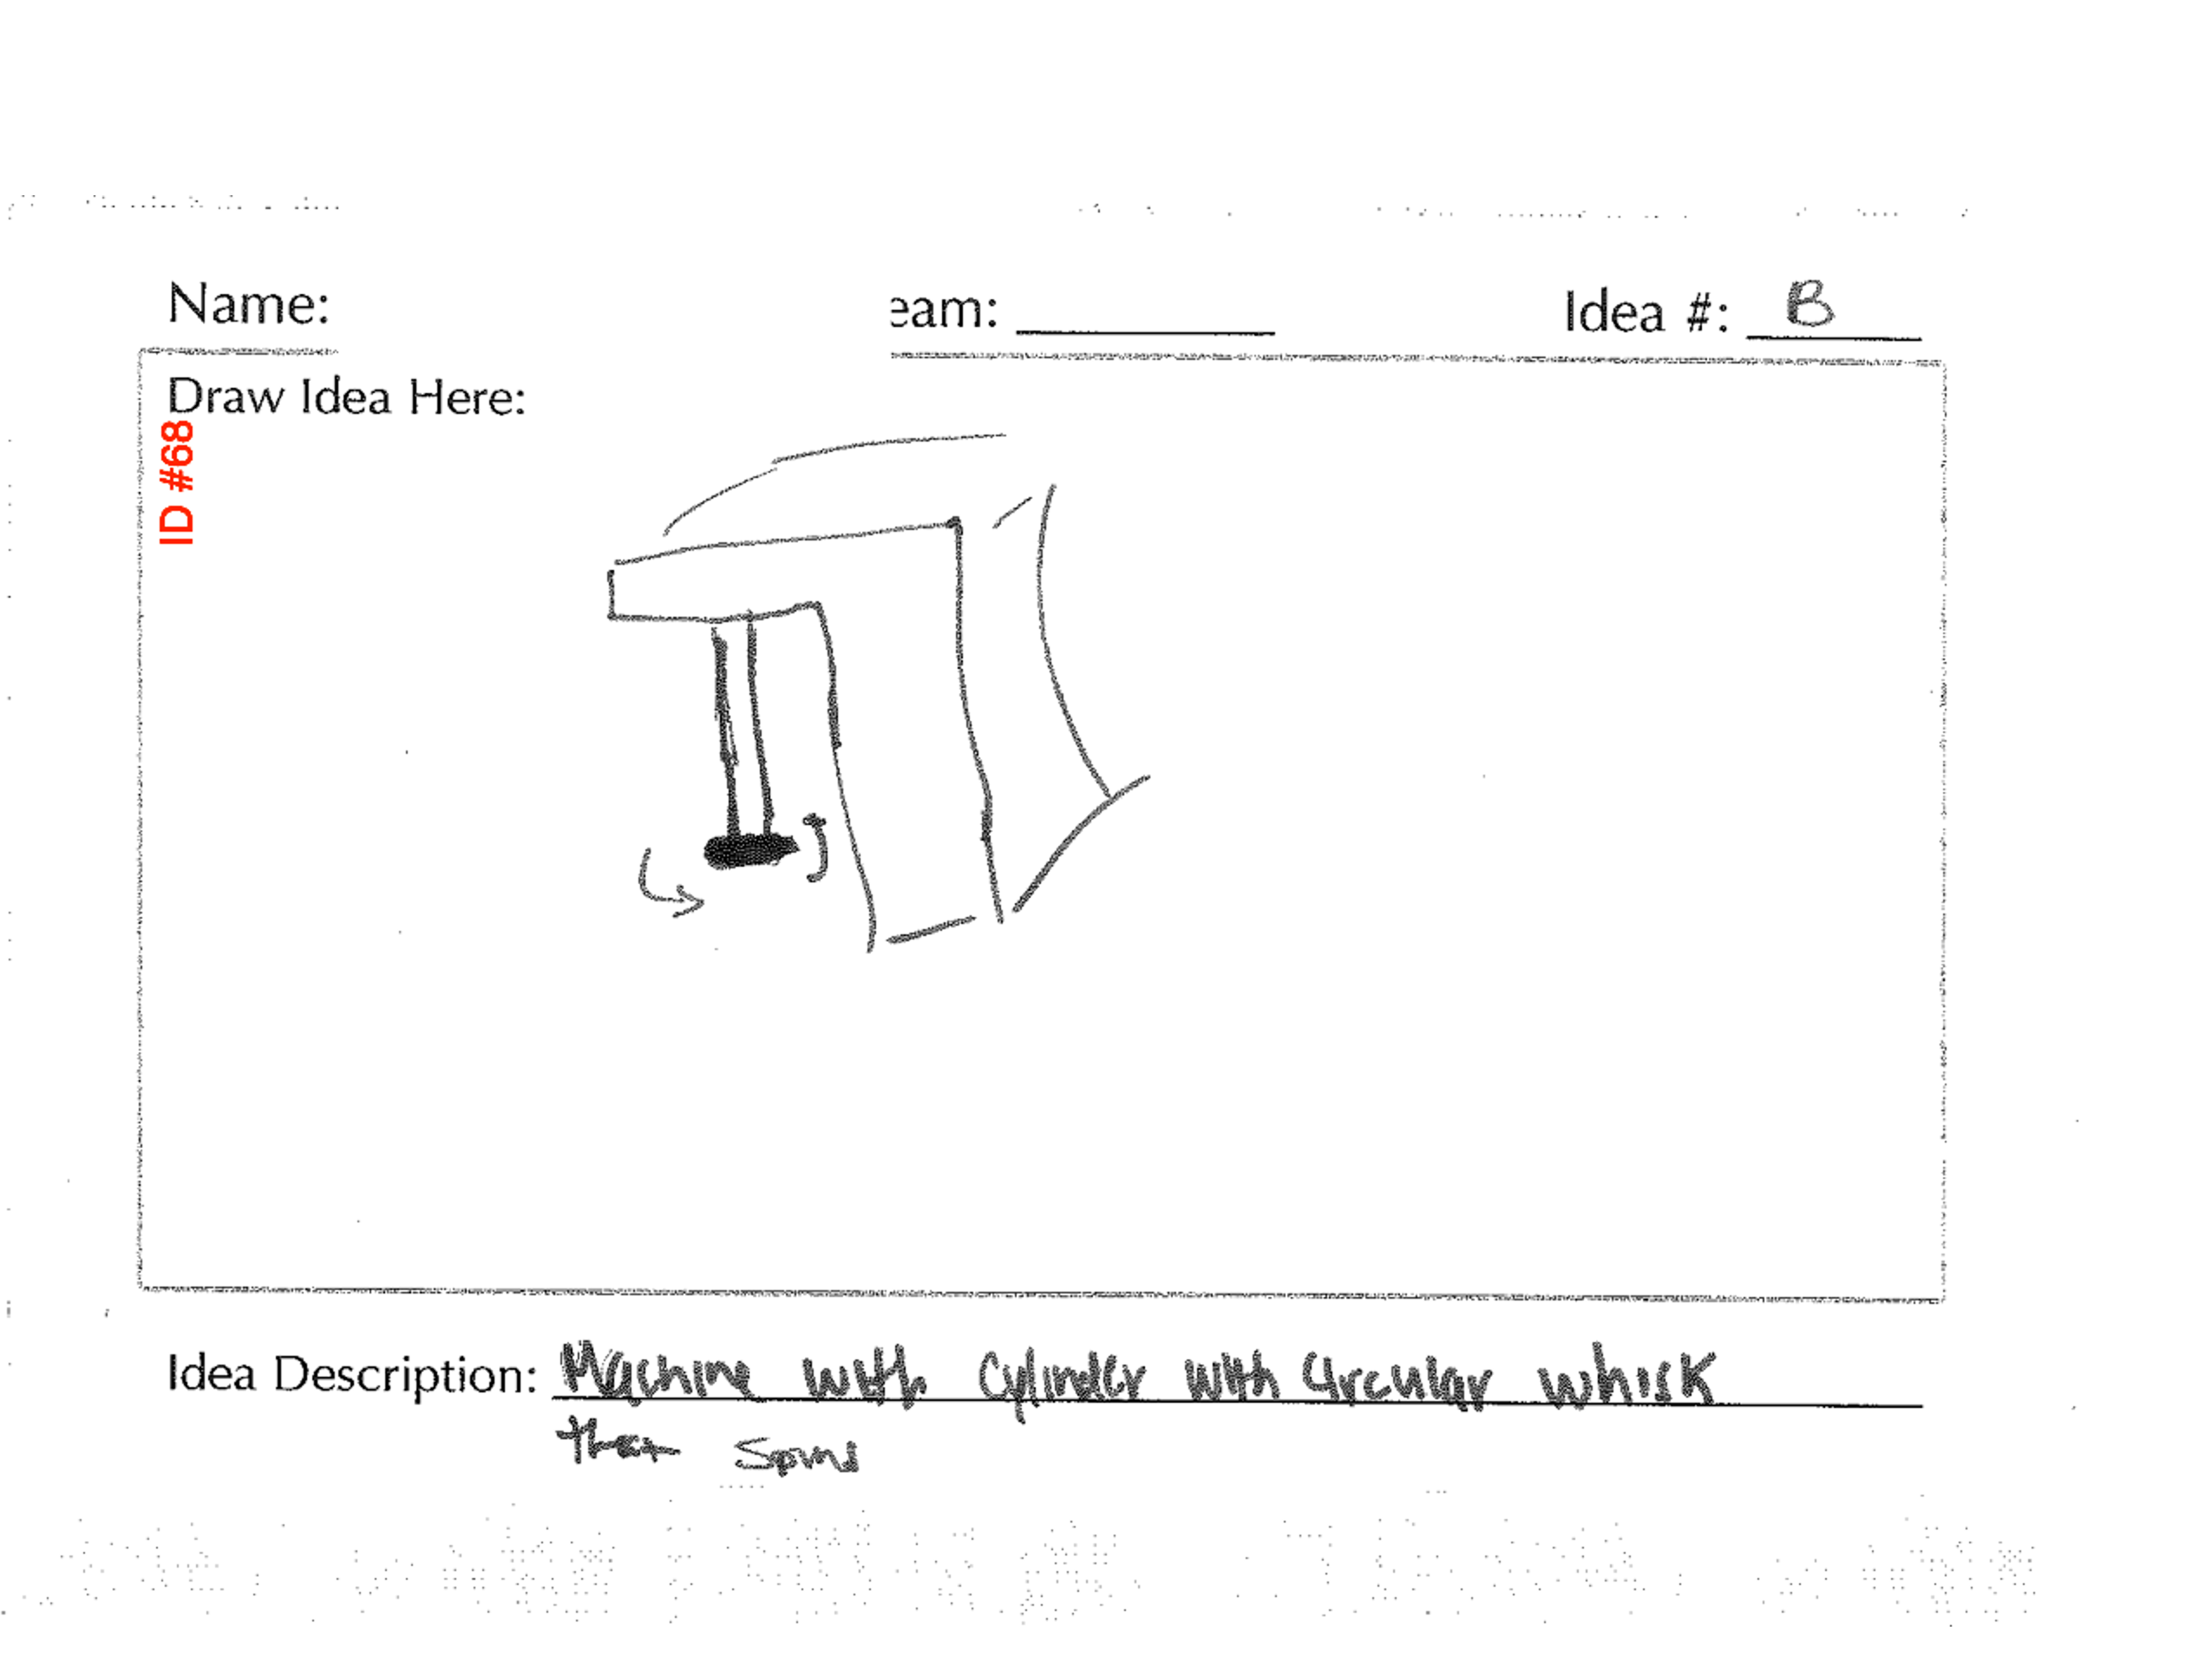 Name: eam: Idea #: B
Draw Idea Here:
ID #68
Idea Description: Machine with cylinder with circular whisk
that spins